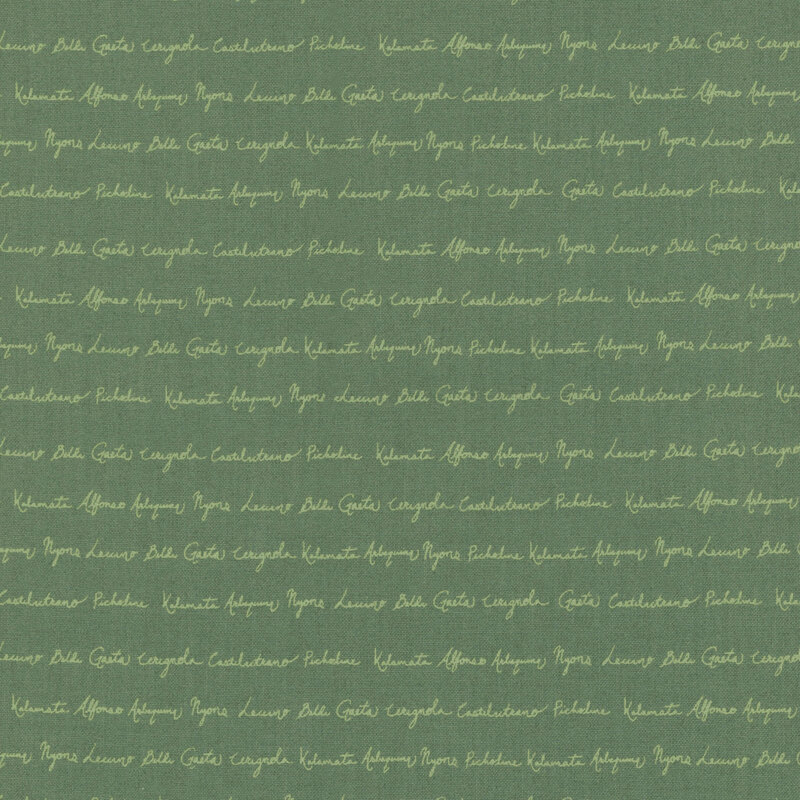 Leccino Belli Gaeta Cerignola Castelvetrano Picholine Kalamata Alfonso Arbequina Nyons Leccino Belli Gaeta Cerignola
Kalamata Alfonso Arbequina Nyons Leccino Belli Gaeta Cerignola Castelvetrano Picholine Kalamata Alfonso Arbequina
Arbequina Nyons Leccino Belli Gaeta Cerignola Kalamata Arbequina Nyons Picholine Kalamata Arbequina Nyons Leccino Belli
Castelvetrano Picholine Kalamata Arbequina Nyons Leccino Belli Gaeta Cerignola Gaeta Castelvetrano Picholine
Leccino Belli Gaeta Cerignola Castelvetrano Picholine Kalamata Alfonso Arbequina Nyons Leccino Belli Gaeta Cerignola
Kalamata Alfonso Arbequina Nyons Leccino Belli Gaeta Cerignola Castelvetrano Picholine Kalamata Alfonso Arbequina
Arbequina Nyons Leccino Belli Gaeta Cerignola Kalamata Arbequina Nyons Picholine Kalamata Arbequina Nyons Leccino Belli
Castelvetrano Picholine Kalamata Arbequina Nyons Leccino Belli Gaeta Cerignola Gaeta Castelvetrano Picholine
Leccino Belli Gaeta Cerignola Castelvetrano Picholine Kalamata Alfonso Arbequina Nyons Leccino Belli Gaeta Cerignola
Kalamata Alfonso Arbequina Nyons Leccino Belli Gaeta Cerignola Castelvetrano Picholine Kalamata Alfonso Arbequina
Arbequina Nyons Leccino Belli Gaeta Cerignola Kalamata Arbequina Nyons Picholine Kalamata Arbequina Nyons Leccino Belli
Castelvetrano Picholine Kalamata Arbequina Nyons Leccino Belli Gaeta Cerignola Gaeta Castelvetrano Picholine
Leccino Belli Gaeta Cerignola Castelvetrano Picholine Kalamata Alfonso Arbequina Nyons Leccino Belli Gaeta Cerignola
Kalamata Alfonso Arbequina Nyons Leccino Belli Gaeta Cerignola Castelvetrano Picholine Kalamata Alfonso Arbequina
Arbequina Nyons Leccino Belli Gaeta Cerignola Kalamata Arbequina Nyons Picholine Kalamata Arbequina Nyons Leccino Belli